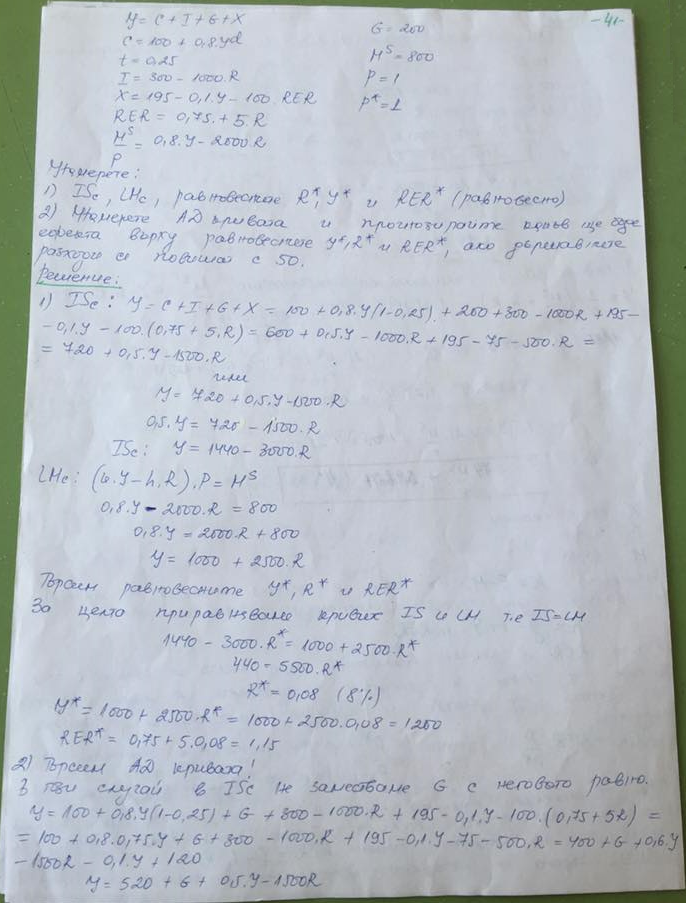 -41-
Y = C + I + G + X
G = 200
C = 100 + 0,8Yd
M^S = 800
t = 0,25
P = 1
I = 300 - 1000.R
P* = 1
X = 195 - 0,1.Y - 100.RER
RER = 0,75 + 5.R
M^S/P = 0,8.Y - 2000R
Намерете:
1) ISc, LMc, равновесное R*, Y* и RER* (равновесно)
2) Намерете AD кривата и прогнозирайте какъв ще бъде
ефекта върху равновесните Y*, R* и RER*, ако държавните
разходи се повишат с 50.
Решение:
1) ISc: Y = C + I + G + X = 100 + 0,8.Y(1-0,25) + 200 + 300 - 1000R + 195 -
- 0,1.Y - 100.(0,75 + 5.R) = 600 + 0,5.Y - 1000.R + 195 - 75 - 500.R =
= 720 + 0,5.Y - 1500.R
или
Y = 720 + 0,5.Y - 1500.R
0,5.Y = 720 - 1500.R
ISc: Y = 1440 - 3000.R
LMc: (k.Y - h.R).P = M^S
0,8.Y - 2000.R = 800
0,8.Y = 2000.R + 800
Y = 1000 + 2500.R
Търсим равновесните Y*, R* и RER*
За целта приравняваме кривих IS и LM т.е IS=LM
1440 - 3000.R* = 1000 + 2500.R*
440 = 5500.R*
R* = 0,08 (8%)
Y* = 1000 + 2500.R* = 1000 + 2500.0,08 = 1200
RER* = 0,75 + 5.0,08 = 1,15
2) Търсим AD кривата!
В този случай в ISc не заместваме G с неговото равно.
Y = 100 + 0,8.Y(1-0,25) + G + 300 - 1000.R + 195 - 0,1.Y - 100.(0,75 + 5R) =
= 100 + 0,8.0,75.Y + G + 300 - 1000.R + 195 - 0,1.Y - 75 - 500.R = 400 + G + 0,6.Y
- 1500R - 0,1.Y + 120
Y = 520 + G + 0,5.Y - 1500R